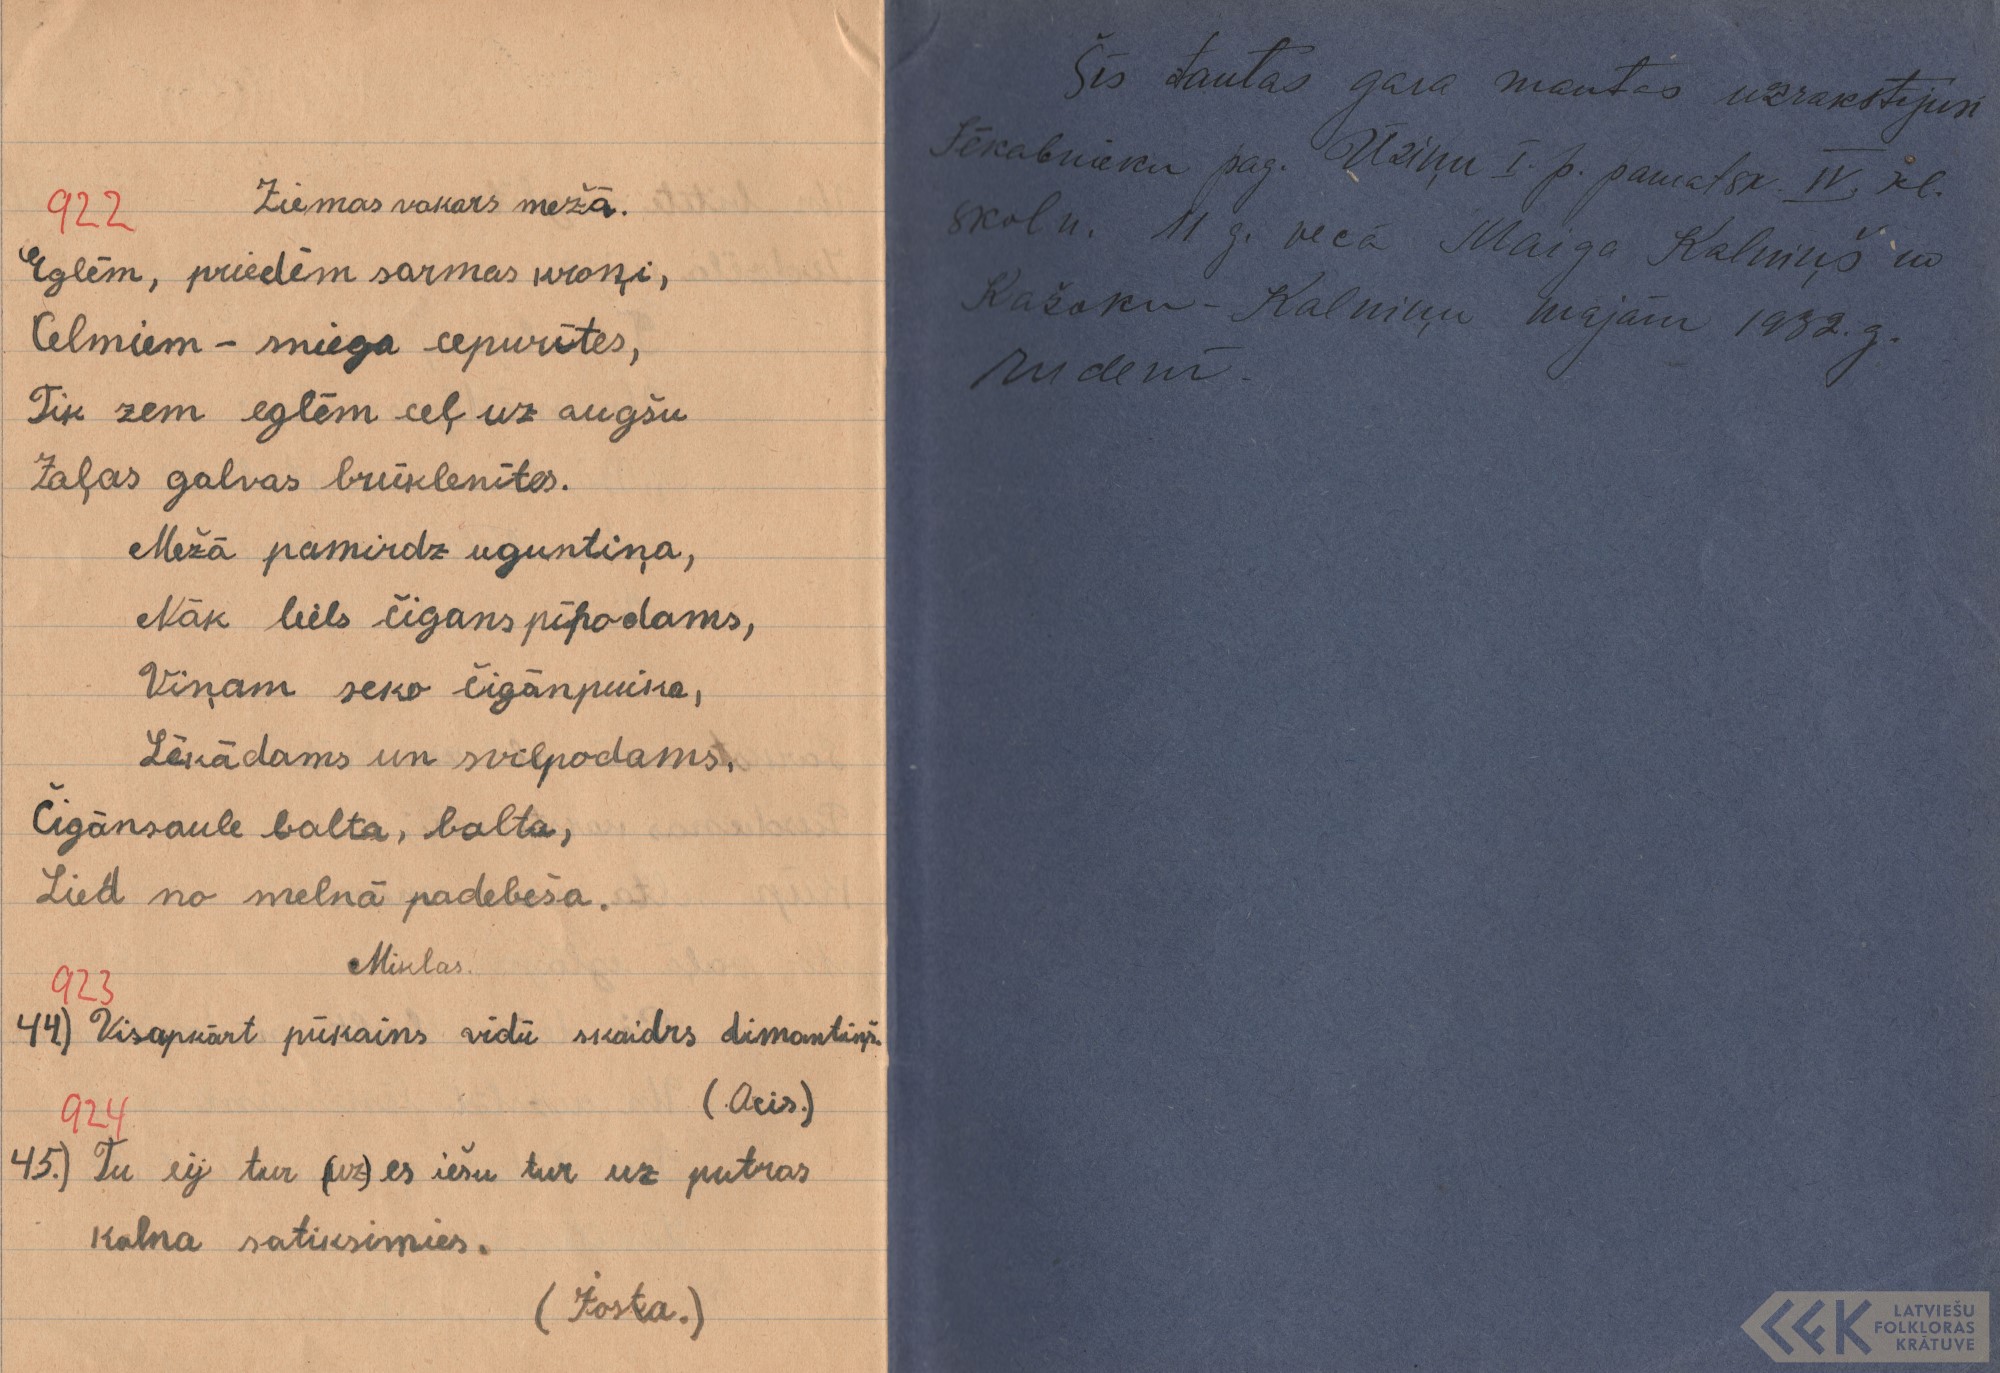 922
Ziemas vakars mežā.
Eglēm, priedēm sarmas kroņi,
Celmiem - sniega cepurītes,
Tik zem eglēm ceļ uz augšu
Zaļas galvas brūklenītes.
Mežā pamirdz uguntiņa,
Nāk liels čigans pīpodams,
Viņam seko čigānpuika,
Lēkādams un svilpodams,
Čigānsaule balta, balta,
Lied no melnā padebeša.
Miklas.
923
44) Visapkārt pūkains vidū skaidrs dimantiņš.
(Acis.)
924
45.) Tu eij tur (uz) es iešu tur uz putras
kalna satiksimies.
(Josta.)
Šīs tautas gara mantas uzrakstījusi
Jēkabnieku pag. Ūziņu I. p. pamatsk. IV. kl.
skoln. 11 g. vecā Maiga Kalniņš no
Kažoku - Kalniņu mājām 1932. g.
rudenī.
LATVIEŠU
FOLKLORAS
KRĀTUVE